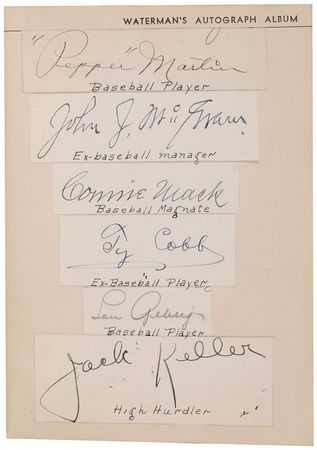 WATERMAN'S AUTOGRAPH ALBUM
"Pepper" Martin
Baseball Player
John J. McGraw
Ex-baseball manager
Connie Mack
Baseball Magnate
Ty Cobb
Ex-Baseball Player
Lou Gehrig
Baseball Player
Jack Keller
High Hurdler